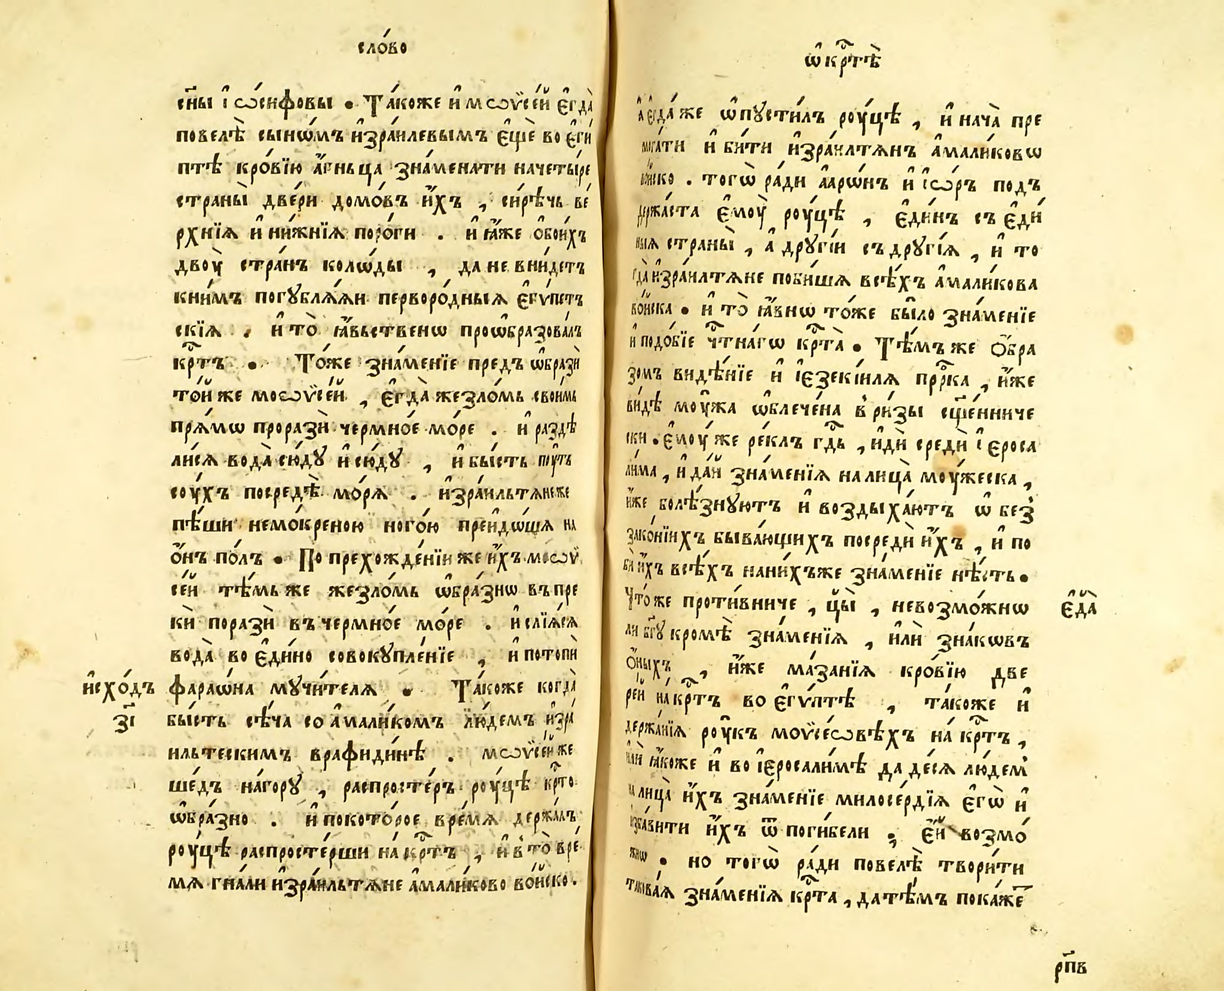 сло́во
сн҃ы і ѡ҆́сифовы . Та́коже и҆ мѡѷсе́й є҆гда̀
повелѣ̀ сыно́мъ и҆зра́илевымъ є҆щѐ во є҆ги́
птѣ кро́вїю а҆́гньца зна́менати начеты́ре
страны̀ две́ри домо́въ и҆́хъ , си́рѣчь ве́
рхнїѧ и҆ ни́жнїѧ поро́ги . и҆ ꙗ҆́же обои́хъ
двоꙋ̀ стра́нъ коло́ды , да не внидетъ
кни́мъ погублѧ́ѧи перворо́дныѧ є҆гѵ́петъ
скїѧ . и҆ то̀ ꙗ҆́вьственѡ проѡбразова́лъ
крⷭ҇тъ . То́же зна́менїе предъ ѡ҆бразѝ
то́й же моѡѷсе́й , є҆гда̀ жезло́мь свои́мь
прѧ́мѡ прорази̏ че́рмное мо́ре . и҆ раздѣ
ли́сѧ вода̀ сю́дꙋ и҆ сю́дꙋ , и҆ бы́сть пꙋ́ть
сꙋ́хъ посредѣ̀ мо́рѧ . и҆зра́ильтѧнеже
пѣ́ши немо́креною ного́ю преидо́шѧ на
о҆́нъ по́лъ . По прехожде́нїи же и҆́хъ мѡѷ
се́й тѣ́мь же жезло́мь ѡ҆бра́знѡ въ пре
ки̏ порази̏ въ че́рмное мо́ре . и҆ слїѧ́сѧ
вода̀ во є҆ди́но совокꙋпле́нїе , и҆ потопи̏
и҆схо́дъ
з҃і
фараѡ́на мꙋчи́телѧ . Та́коже когда̀
бы́сть сѣ́ча со а҆мали́комъ лю́демъ и҆зра́
ильтескимъ врафиди́нѣ . мѡѷсе́й же
ше́дъ на́горꙋ , распросте́ръ рꙋ́цѣ крⷭ҇то
ѡ҆бра́зно . и҆ покото́рое вре́мѧ держа́лъ
рꙋ́цѣ распросте́рши на крⷭ҇тъ , и҆ в то̀ вре́
мѧ гна́ли и҆зра́ильтѧне а҆мали́ково во́йско .
ѡ҆ крⷭ҇тѣ̀
а҆ є҆гда̀ же ѡ҆пꙋсти́лъ рꙋ́цѣ , и҆ нача̀ пре
мага́ти и҆ би́ти и҆зра́илтѧнъ а҆мали́ковѡ
во́йско . тогѡ̀ ра́ди а҆арѡ́нъ и҆ і҆ѡ́ръ подъ
держа́ста є҆мꙋ̀ рꙋ́цѣ , є҆ди́нъ съ є҆ди́
ныѧ страны̀ , а҆ дрꙋгі́и съ дрꙋгі́ѧ , и҆ то
гда̀ и҆зра́илтѧне поби́шѧ всѣ́хъ а҆мали́кова
во́йска . и҆ то̀ ꙗ҆́внѡ то́же бы́ло зна́менїе
и҆ подо́бїе чⷭ҇тна́гѡ крⷭ҇та . Тѣ́мъ же О҆́бра
зомъ видѣ́нїе и҆ і҆езекі́илѧ прⷪ҇ро́ка , и҆́же
ви́дѣ мꙋ́жа ѡ҆блече́на в ри́зы сщ҃е́нниче
ски . є҆мꙋ́ же ре́клъ гдⷭ҇ь , и҆дѝ средѝ і҆ероса
ли́ма , и҆ да́й зна́менїѧ на лица̀ мꙋ́жеска ,
и҆́же болѣ́знꙋютъ и҆ воздыха́ютъ ѡ҆ без
зако́нїихъ быва́ющихъ посредѝ и҆́хъ , и҆ по
бі́и и҆́хъ всѣ́хъ нани́хъже зна́менїе нѣ́сть .
Что́же проти́вниче , цы̀ , невозмо́жнѡ
є҆да̀
ли бг҃ꙋ кромѣ̀ зна́менїѧ , и҆лѝ зна́кѡвъ
О҆́ныхъ , и҆́же ма́занїѧ кро́вїю две
ре́й на крⷭ҇тъ во є҆гѵ́птѣ , та́коже и҆
держа́нїѧ рꙋ́къ моѷсеѡ́вѣхъ на крⷭ҇тъ ,
и҆лѝ ꙗ҆́коже и҆ во і҆еросали́мѣ да десѧ лю́дем
на лица̀ и҆́хъ зна́менїе милосе́рдїѧ є҆гѡ̀ и҆
и҆зба́вити и҆́хъ ѿ поги́бели ; є҆́й возмо́
жнѡ . но тогѡ̀ ра́ди повелѣ̀ твори́ти
такова́ѧ зна́менїѧ крⷭ҇та , да тѣ́мъ пока́же
рп҃в